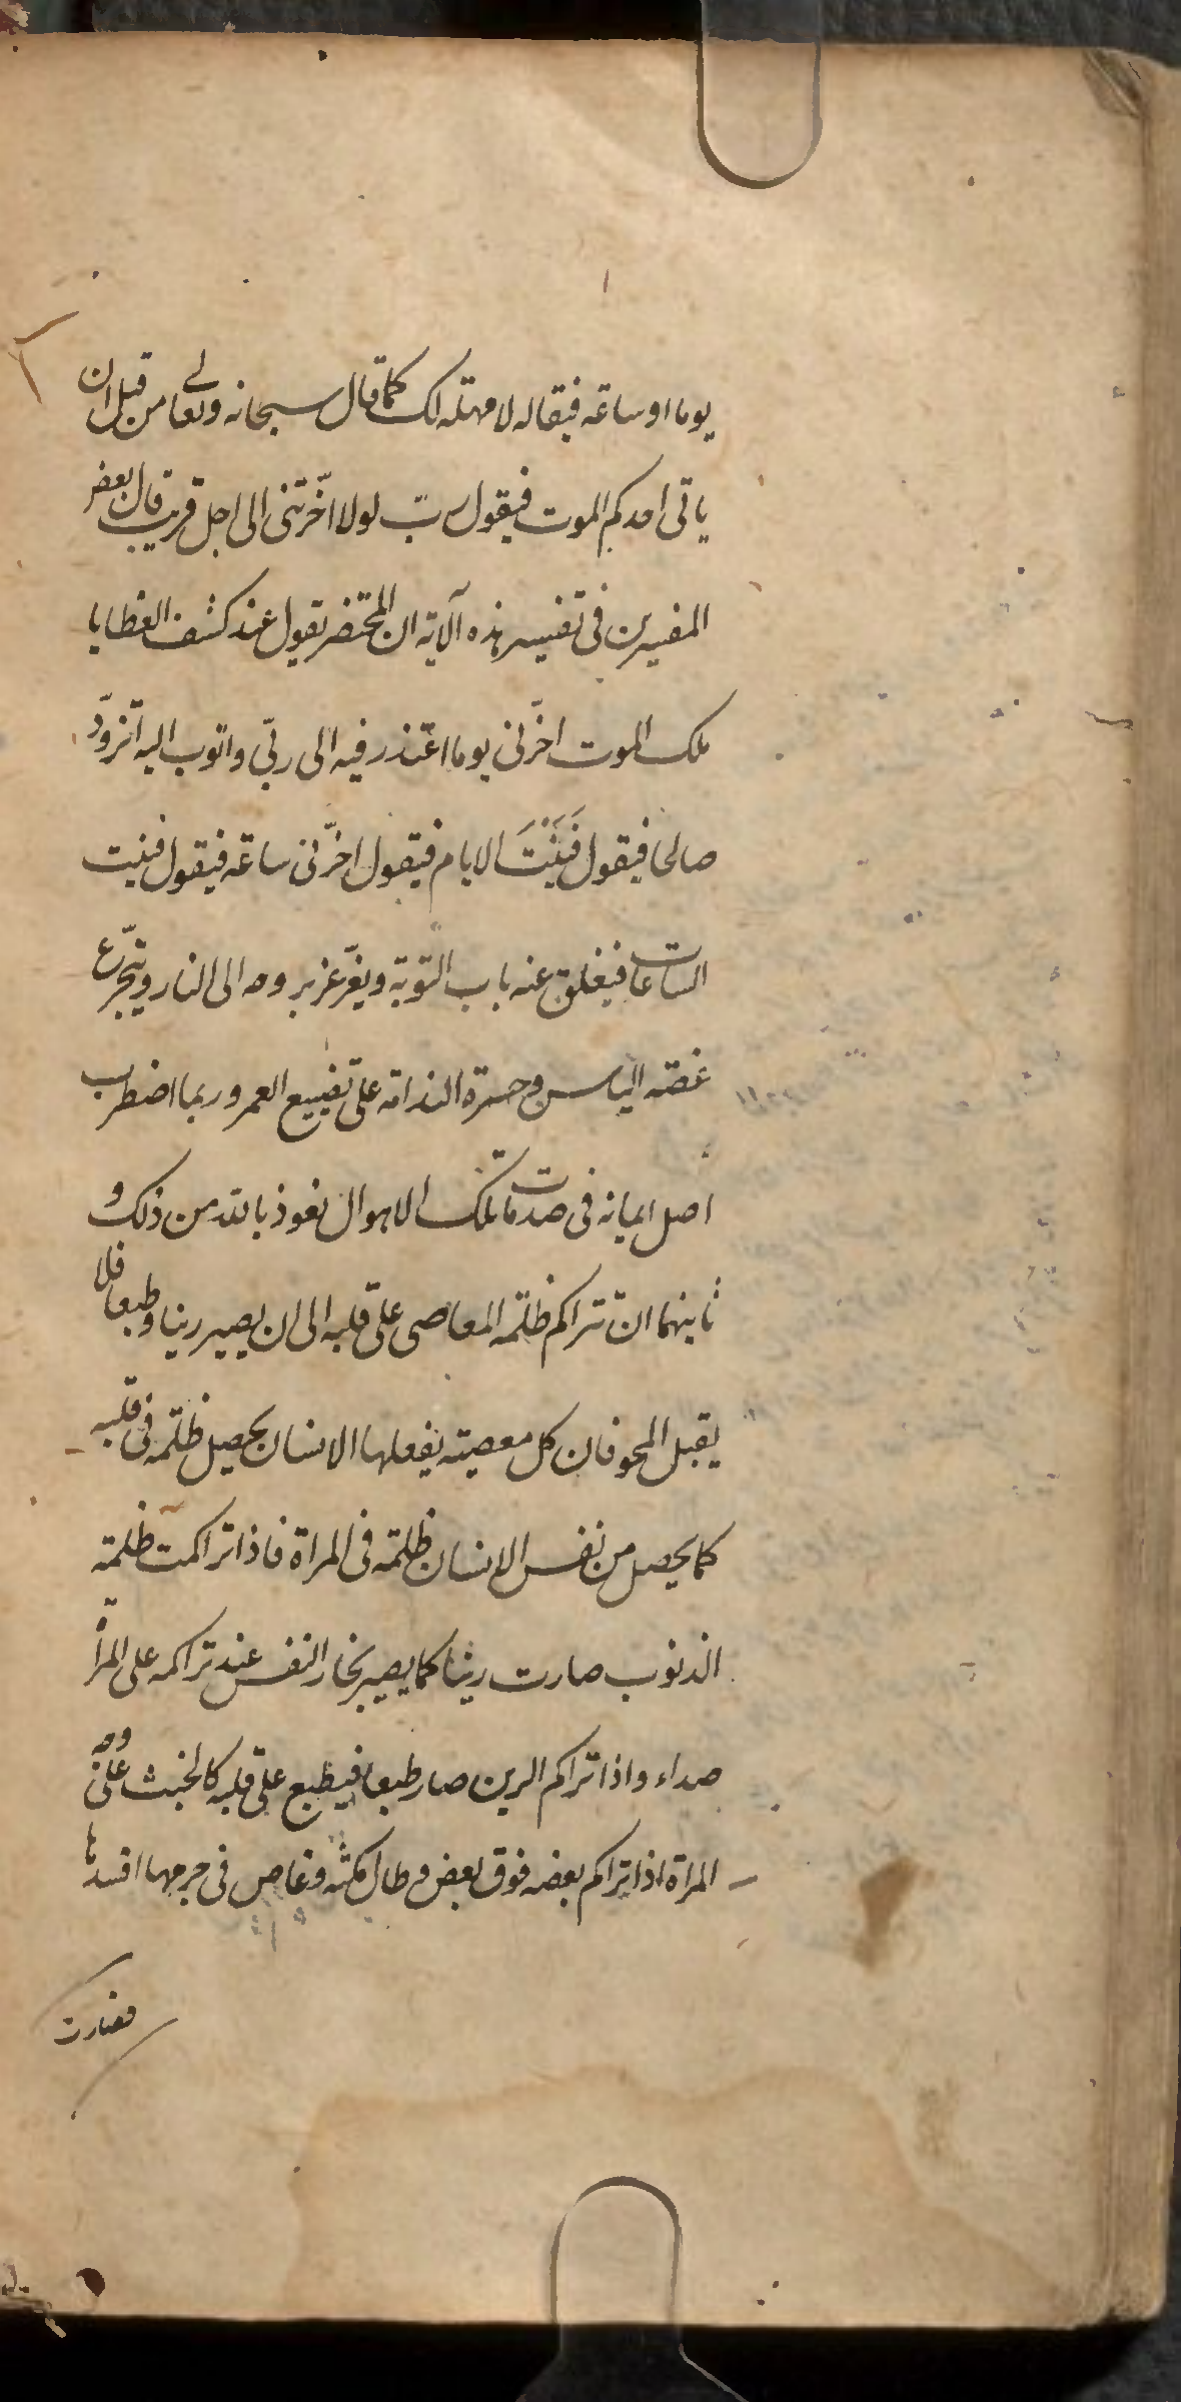 يوما او ساعة فيقال له لا مهلة لك كما قال سبحانه وتعالى من قبل ان
ياتى احدكم الموت فيقول رب لولا اخّرتنى الى اجل قريب قال بعض
المفسرين فى تفسير هذه الآية ان المحتضر يقول عند كشف الغطا يا
ملك الموت اخّرنى يوما اعتذر فيه الى ربّى واتوب اليه اتزوّد
صالحا فيقول فَنِيَتْ الايام فيقول اخّرنى ساعة فيقول فنيت
الساعات فيغلق عنه باب التوبة ويغرغر بروحه الى النار ويتجرّع
غصة الياس وحسرة الندامة على تضييع العمر وربما اضطرب
اصل ايمانه فى صدمات تلك الاهوال نعوذ بالله من ذلك و
ثانيهما ان تتراكم ظلمة المعاصى على قلبه الى ان يصير رينا وطبعا فلا
يقبل المحو فان كل معصية يفعلها الانسان يحصل ظلمة فى قلبه
كما يحصل من نفس الانسان ظلمة فى المرآة فاذا تراكمت ظلمة
الذنوب صارت رينا كما يصير بخار النفس عند تراكمه على المرآة
صداء واذا تراكم الرين صار طبعا فيطبع على قلبه كالخبث على وجه
المراة اذا تراكم بعضه فوق بعض وطال مكثه وغاص فى جرمها افسدها
فصارت